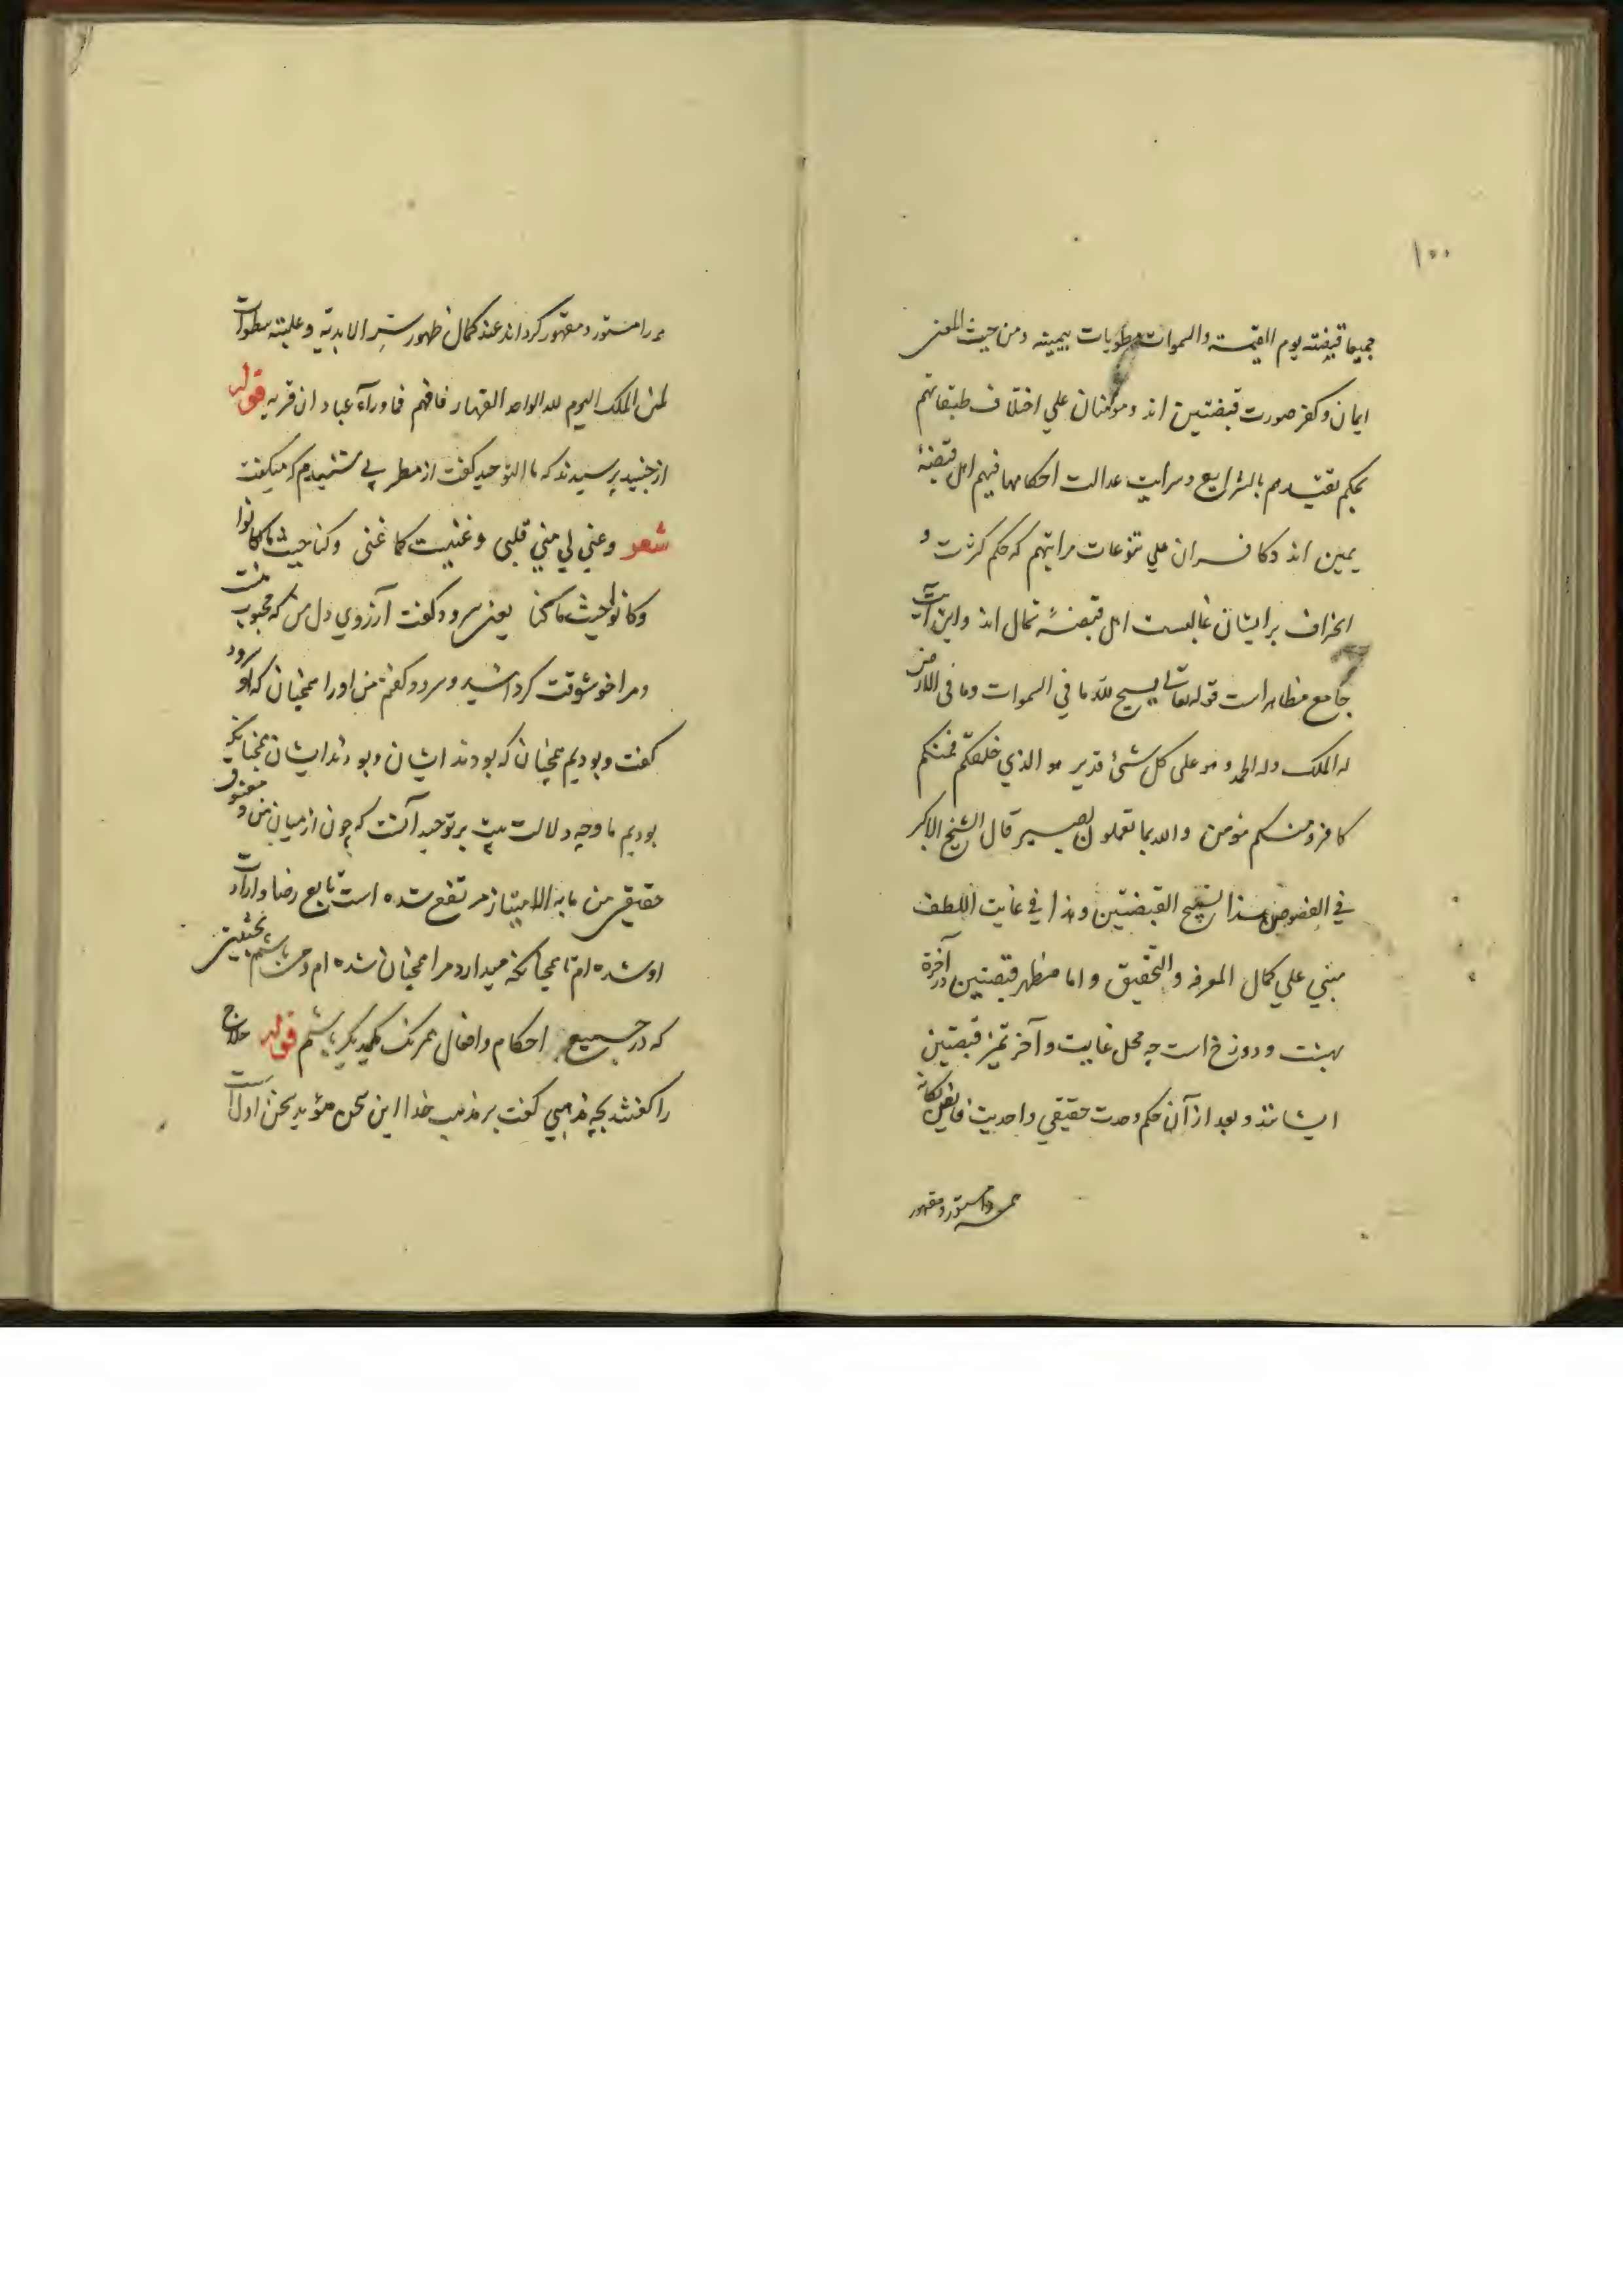 ١٠٠
جمیعا قبضته یوم القیمة والسموات مطویات بیمینه ومن حیث المعنی
ایمان وکفر صورت قبضتین اند ومومنان علی اختلاف طبقاتهم
بحکم تقیدهم بالشرایع وسرایت عدالت احکامها فیهم اهل قبضهٔ
یمین اند وکافران علی تنوعات مراتبهم که حکم کثرت و
انحراف بر ایشان غالبست اهل قبضهٔ شمال اند واین آیت
جامع مظاهر است قوله تعالی یسبح لله ما فی السموات وما فی الارض
له الملک وله الحمد وهو علی کل شیٔ قدیر هو الذی خلقکم فمنکم
کافر ومنکم مؤمن والله بما تعملون بصیر قال الشیخ الاکبر
فی الفصوص هذا القبضتین وهذا فی غایت اللطف
مبنی علی کمال المعرفه والتحقیق واما مظهر قبضتین در آخرة
بهشت ودوزخ است چه محل غایت وآخر تمیز قبضتین
ایشانند وبعد از آن حکم وحدت حقیقی واحدیت
همه را مستور ومقهور
همه را مستور ومقهور کرداند عند کمال ظهور سر الابدیة وغلبته سطوات
لمن الملک الیوم لله الواحد القهار فافهم فما وراء عبادان قریه قوله
از جنید پرسیدند که ما التوحید کفت از مطربی شنیدم که میکفت
شعر وغنی لی منی قلبی وغنیت کما غنی وکنا حیث ما کانوا
وکانوا حیث ما کنا یعنی سرود کفت آرزوی دل من که محبوب منست
ومرا خوشوقت کردانید وسرود کفتم من اورا همچنان که او سرود
کفت وبودیم همچنان که بودند ایشان وبودند ایشان همچنانکه
بودیم ما وجه دلالت بیت بر توحید آنست که چون از میان من و معشوق
حقیقی من ما به الامتیاز مرتفع شده است تابع رضا وارادت
او شده ام تا همچنانکه میدارد مرا همچنان شده ام ومن باشم بحیثیتی
که در جمیع احکام وافعال همرنک یکدیکر باشیم قوله حلاج
را کفتند بچه مذهبی کفت بر مذهب خدا این سخن مؤید سخن اول است